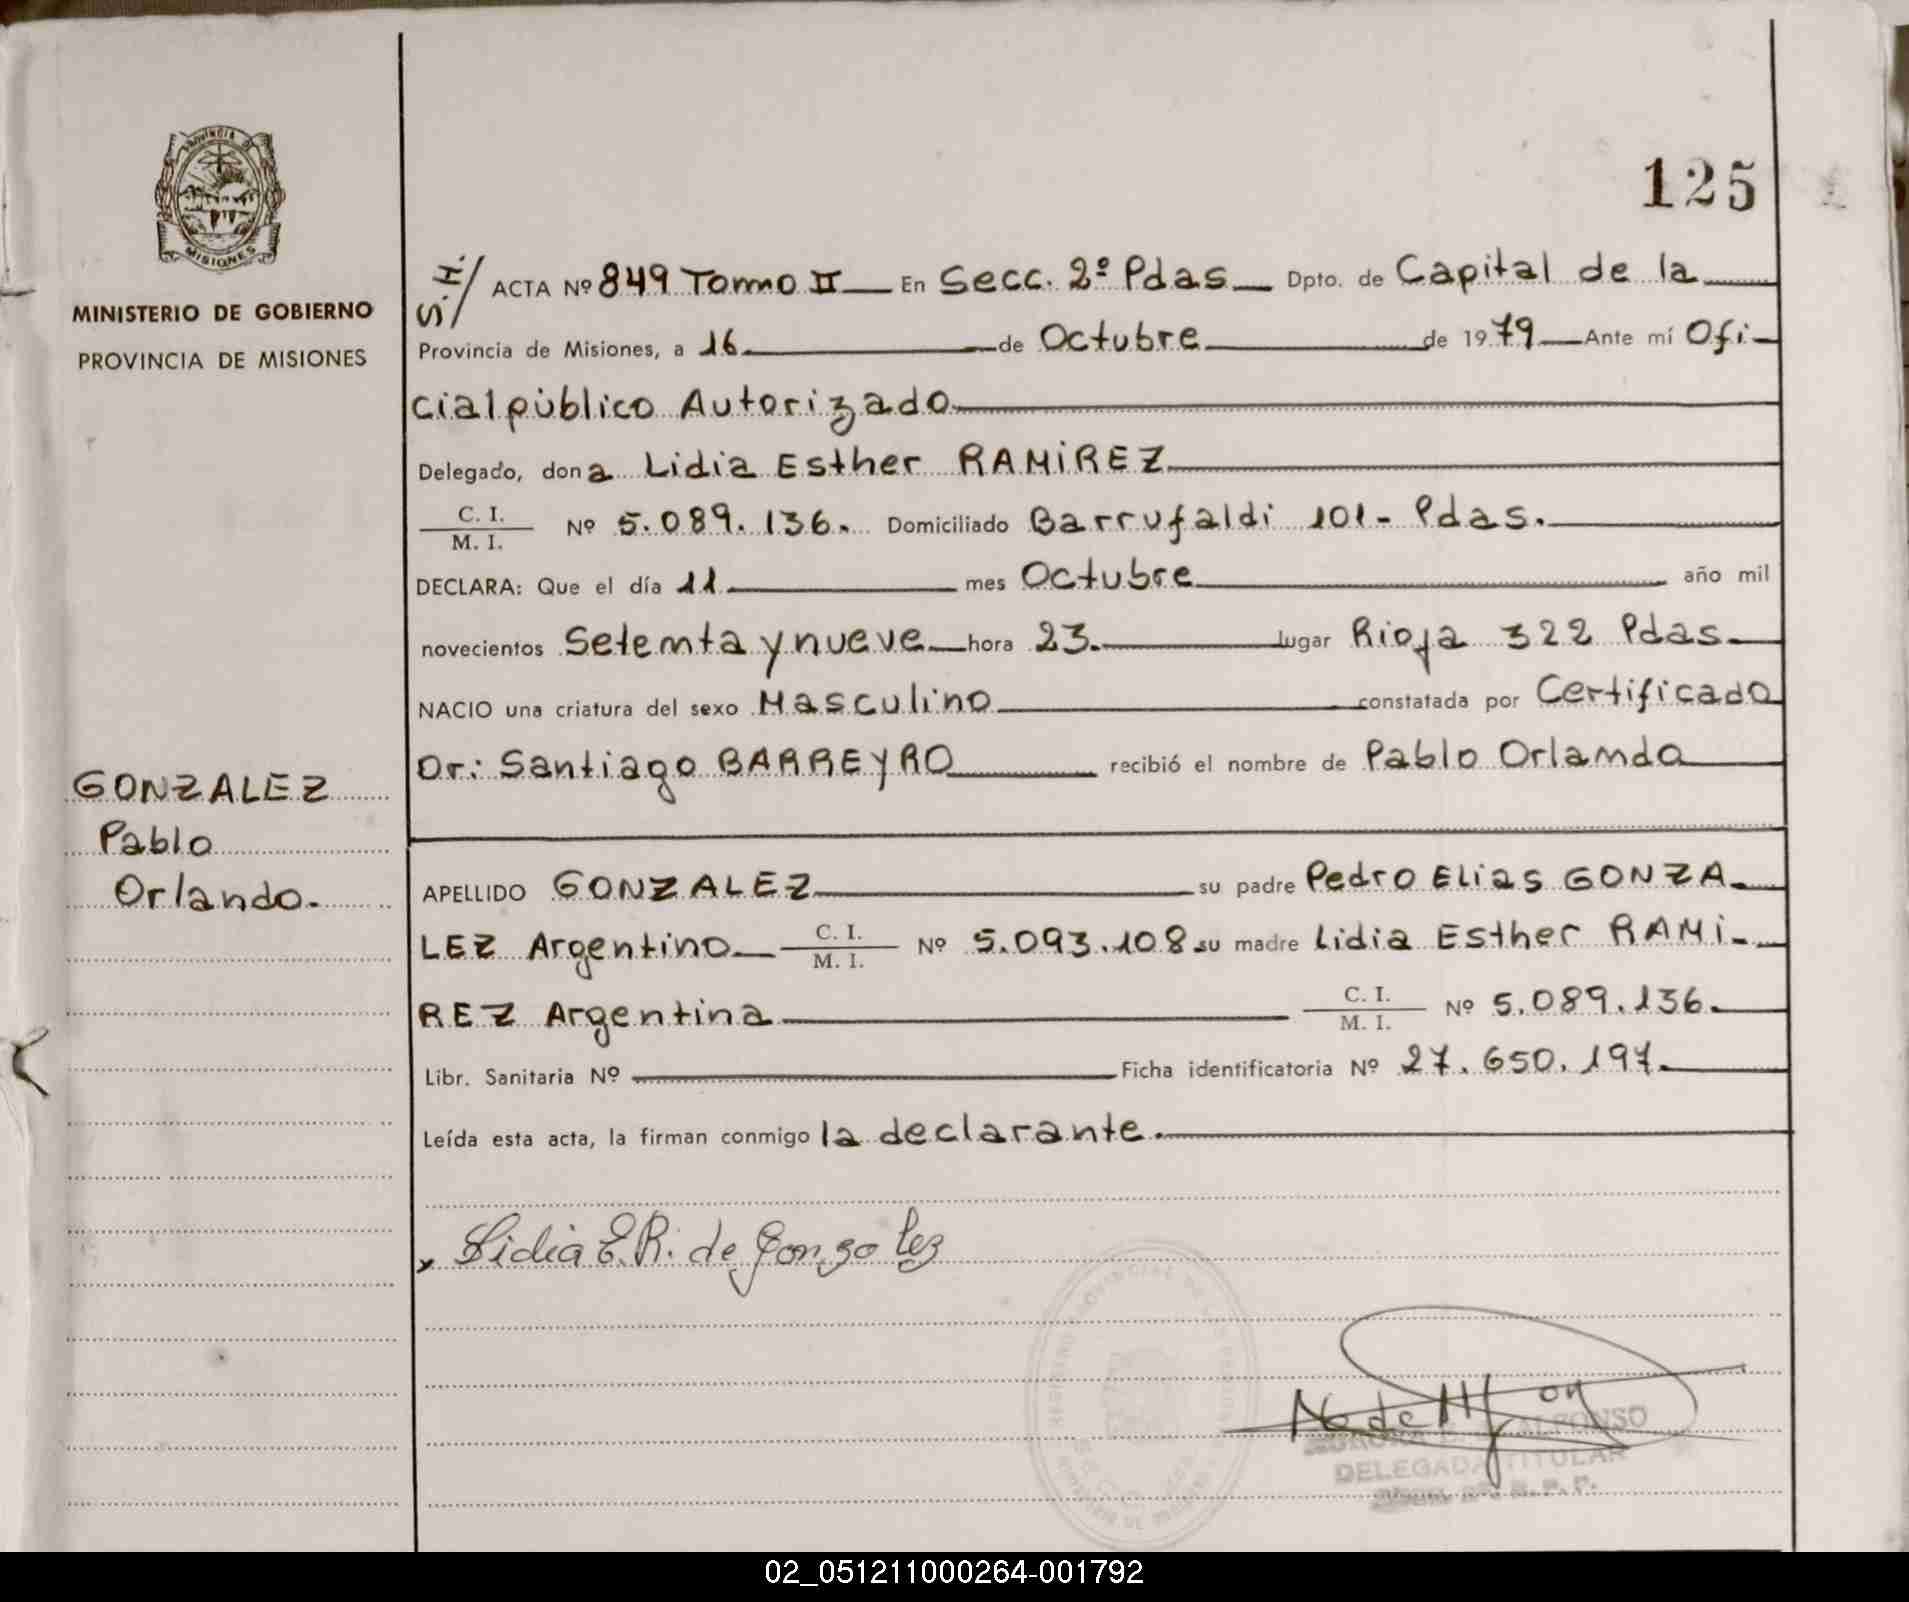 PROVINCIA DE
MISIONES
MINISTERIO DE GOBIERNO
PROVINCIA DE MISIONES
GONZALEZ
Pablo
Orlando.
125
S.I/ ACTA Nº 849 Tomo II En Secc. 2º Pdas Dpto. de Capital de la
Provincia de Misiones, a 16 de Octubre de 1979 Ante mí Ofi-
cial público Autorizado
Delegado, don a Lidia Esther RAMIREZ
C. I.
M. I. Nº 5.089.136. Domiciliado Barrufaldi 101- Pdas.
DECLARA: Que el día 11 mes Octubre año mil
novecientos Setenta y nueve hora 23. lugar Rioja 322 Pdas.
NACIO una criatura del sexo Masculino constatada por Certificado
Dr: Santiago BARREYRO recibió el nombre de Pablo Orlando
APELLIDO GONZALEZ su padre Pedro Elias GONZA-
LEZ Argentino C. I.
M. I. Nº 5.093.108 su madre Lidia Esther RAMI-
REZ Argentina C. I.
M. I. Nº 5.089.136.
Libr. Sanitaria Nº Ficha identificatoria Nº 27.650.197.
Leída esta acta, la firman conmigo la declarante.
x Lidia E.R. de Gonzalez
ALFONSO
DELEGADA TITULAR
02_051211000264-001792